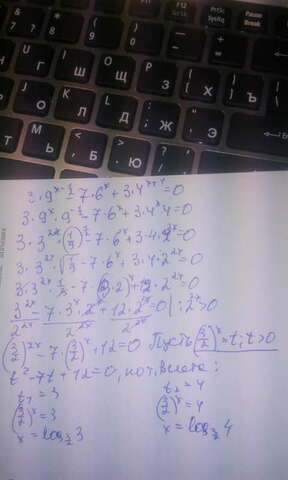 F12
PrtSc
SysRq
Pause
Break
3·9^{x-1/2}-7·6^x+3·4^{x+1}=0
3·9^x·9^{-1/2}-7·6^x+3·4^x·4=0
3·3^{2x}·(1/9)^{1/2}-7·6^x+3·4·2^{2x}=0
3·3^{2x}·√1/9-7·6^x+3·4·2^{2x}=0
3·3^{2x}·1/3-7·(3·2)^x+12·2^{2x}=0
3^{2x}/2^{2x}-7·3^x·2^x/2^{2x}+12·2^{2x}/2^{2x}=0 |:2^{2x}>0
(3/2)^{2x}-7·(3/2)^x+12=0 Пусть (3/2)^x=t, t>0
t²-7t+12=0, по т. Виета:
t₁=3 t₂=4
(3/2)^x=3 (3/2)^x=4
x=log_{3/2}3 x=log_{3/2}4